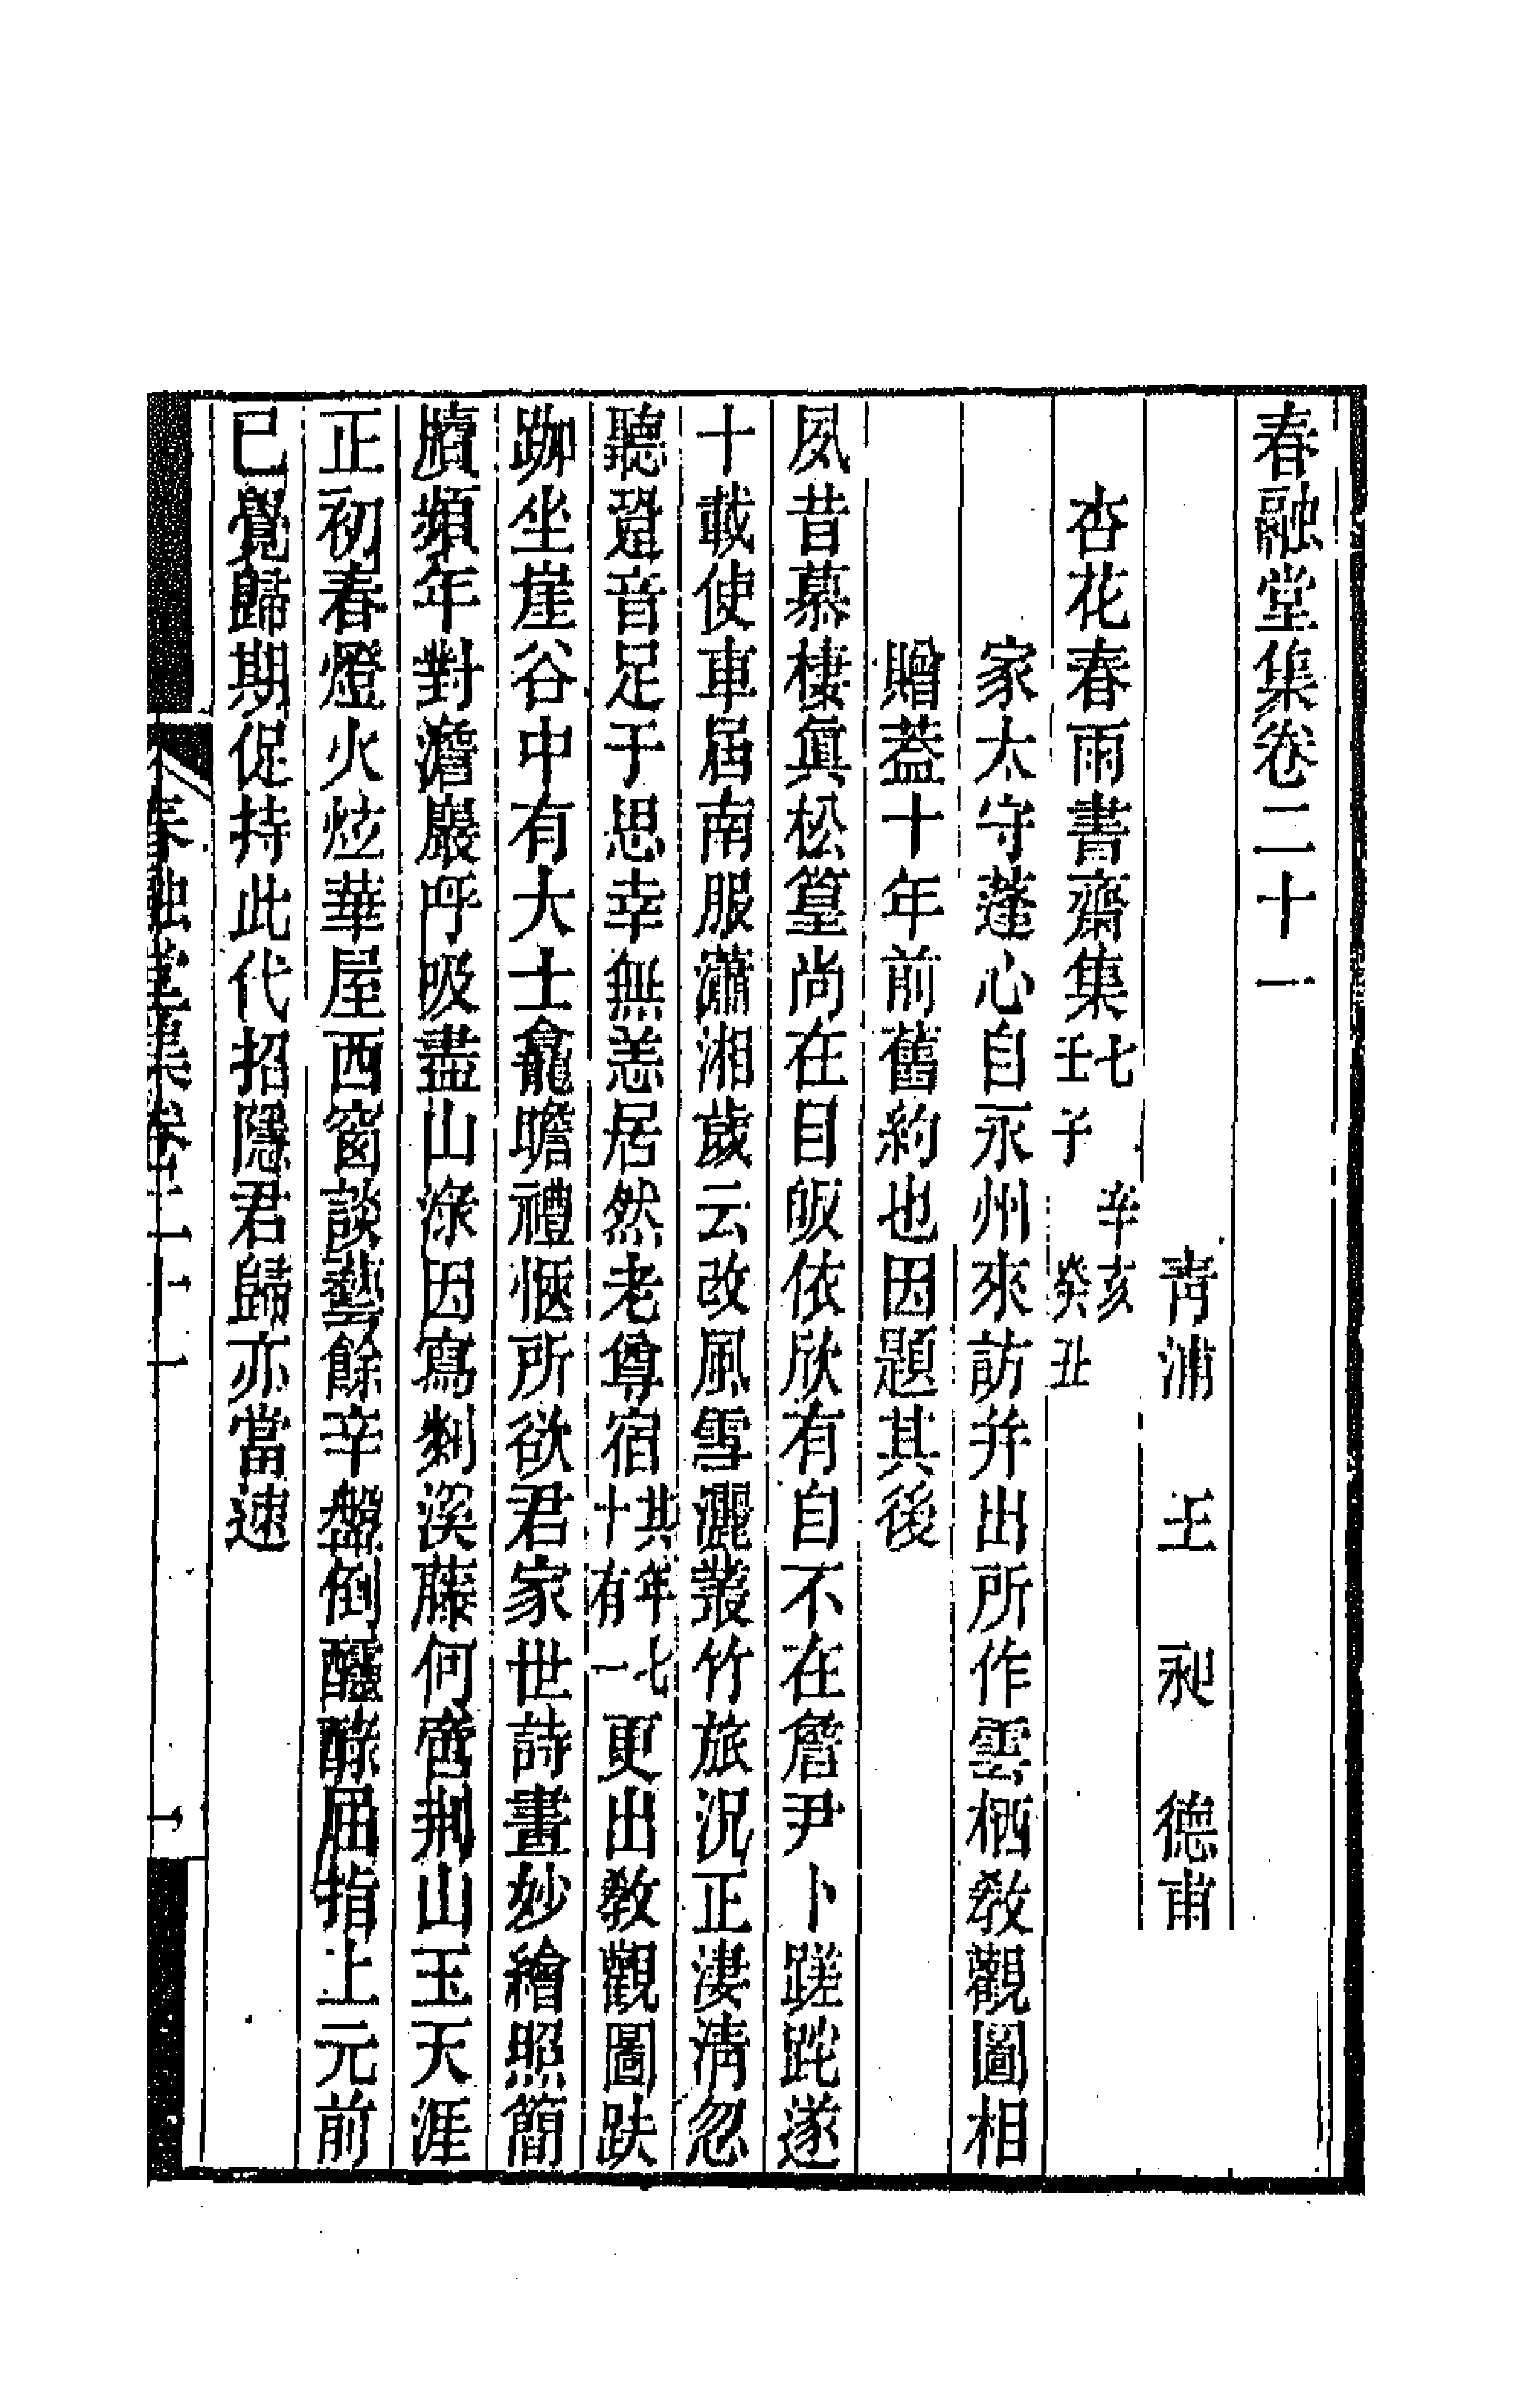 春融堂集卷二十一
青浦 王 昶 德甫
杏花春雨書齋集七 辛亥 壬子 癸丑
家太守蓬心自永州來訪并出所作雲栖敎觀圖相
贈蓋十年前舊約也因題其後
夙昔慕棲眞松篁尚在目皈依欣有自不在詹尹卜蹉跎遂
十載使車屆南服瀟湘歲云改風雪灑叢竹旅況正淒清忽
聽跫音足于思幸無恙居然老尊宿其年七十有一更出敎觀圖趺
跏坐崖谷中有大士龕瞻禮愜所欲君家世詩畫妙繪照簡
牘頻年對澹巖呼吸盡山淥因寫剡溪藤何啻荆山玉天涯
正初春燈火炫華屋西窗談藝餘辛盤倒醽醁屈指上元前
已覺歸期促持此代招隱君歸亦當速
春融堂集卷二十一 一